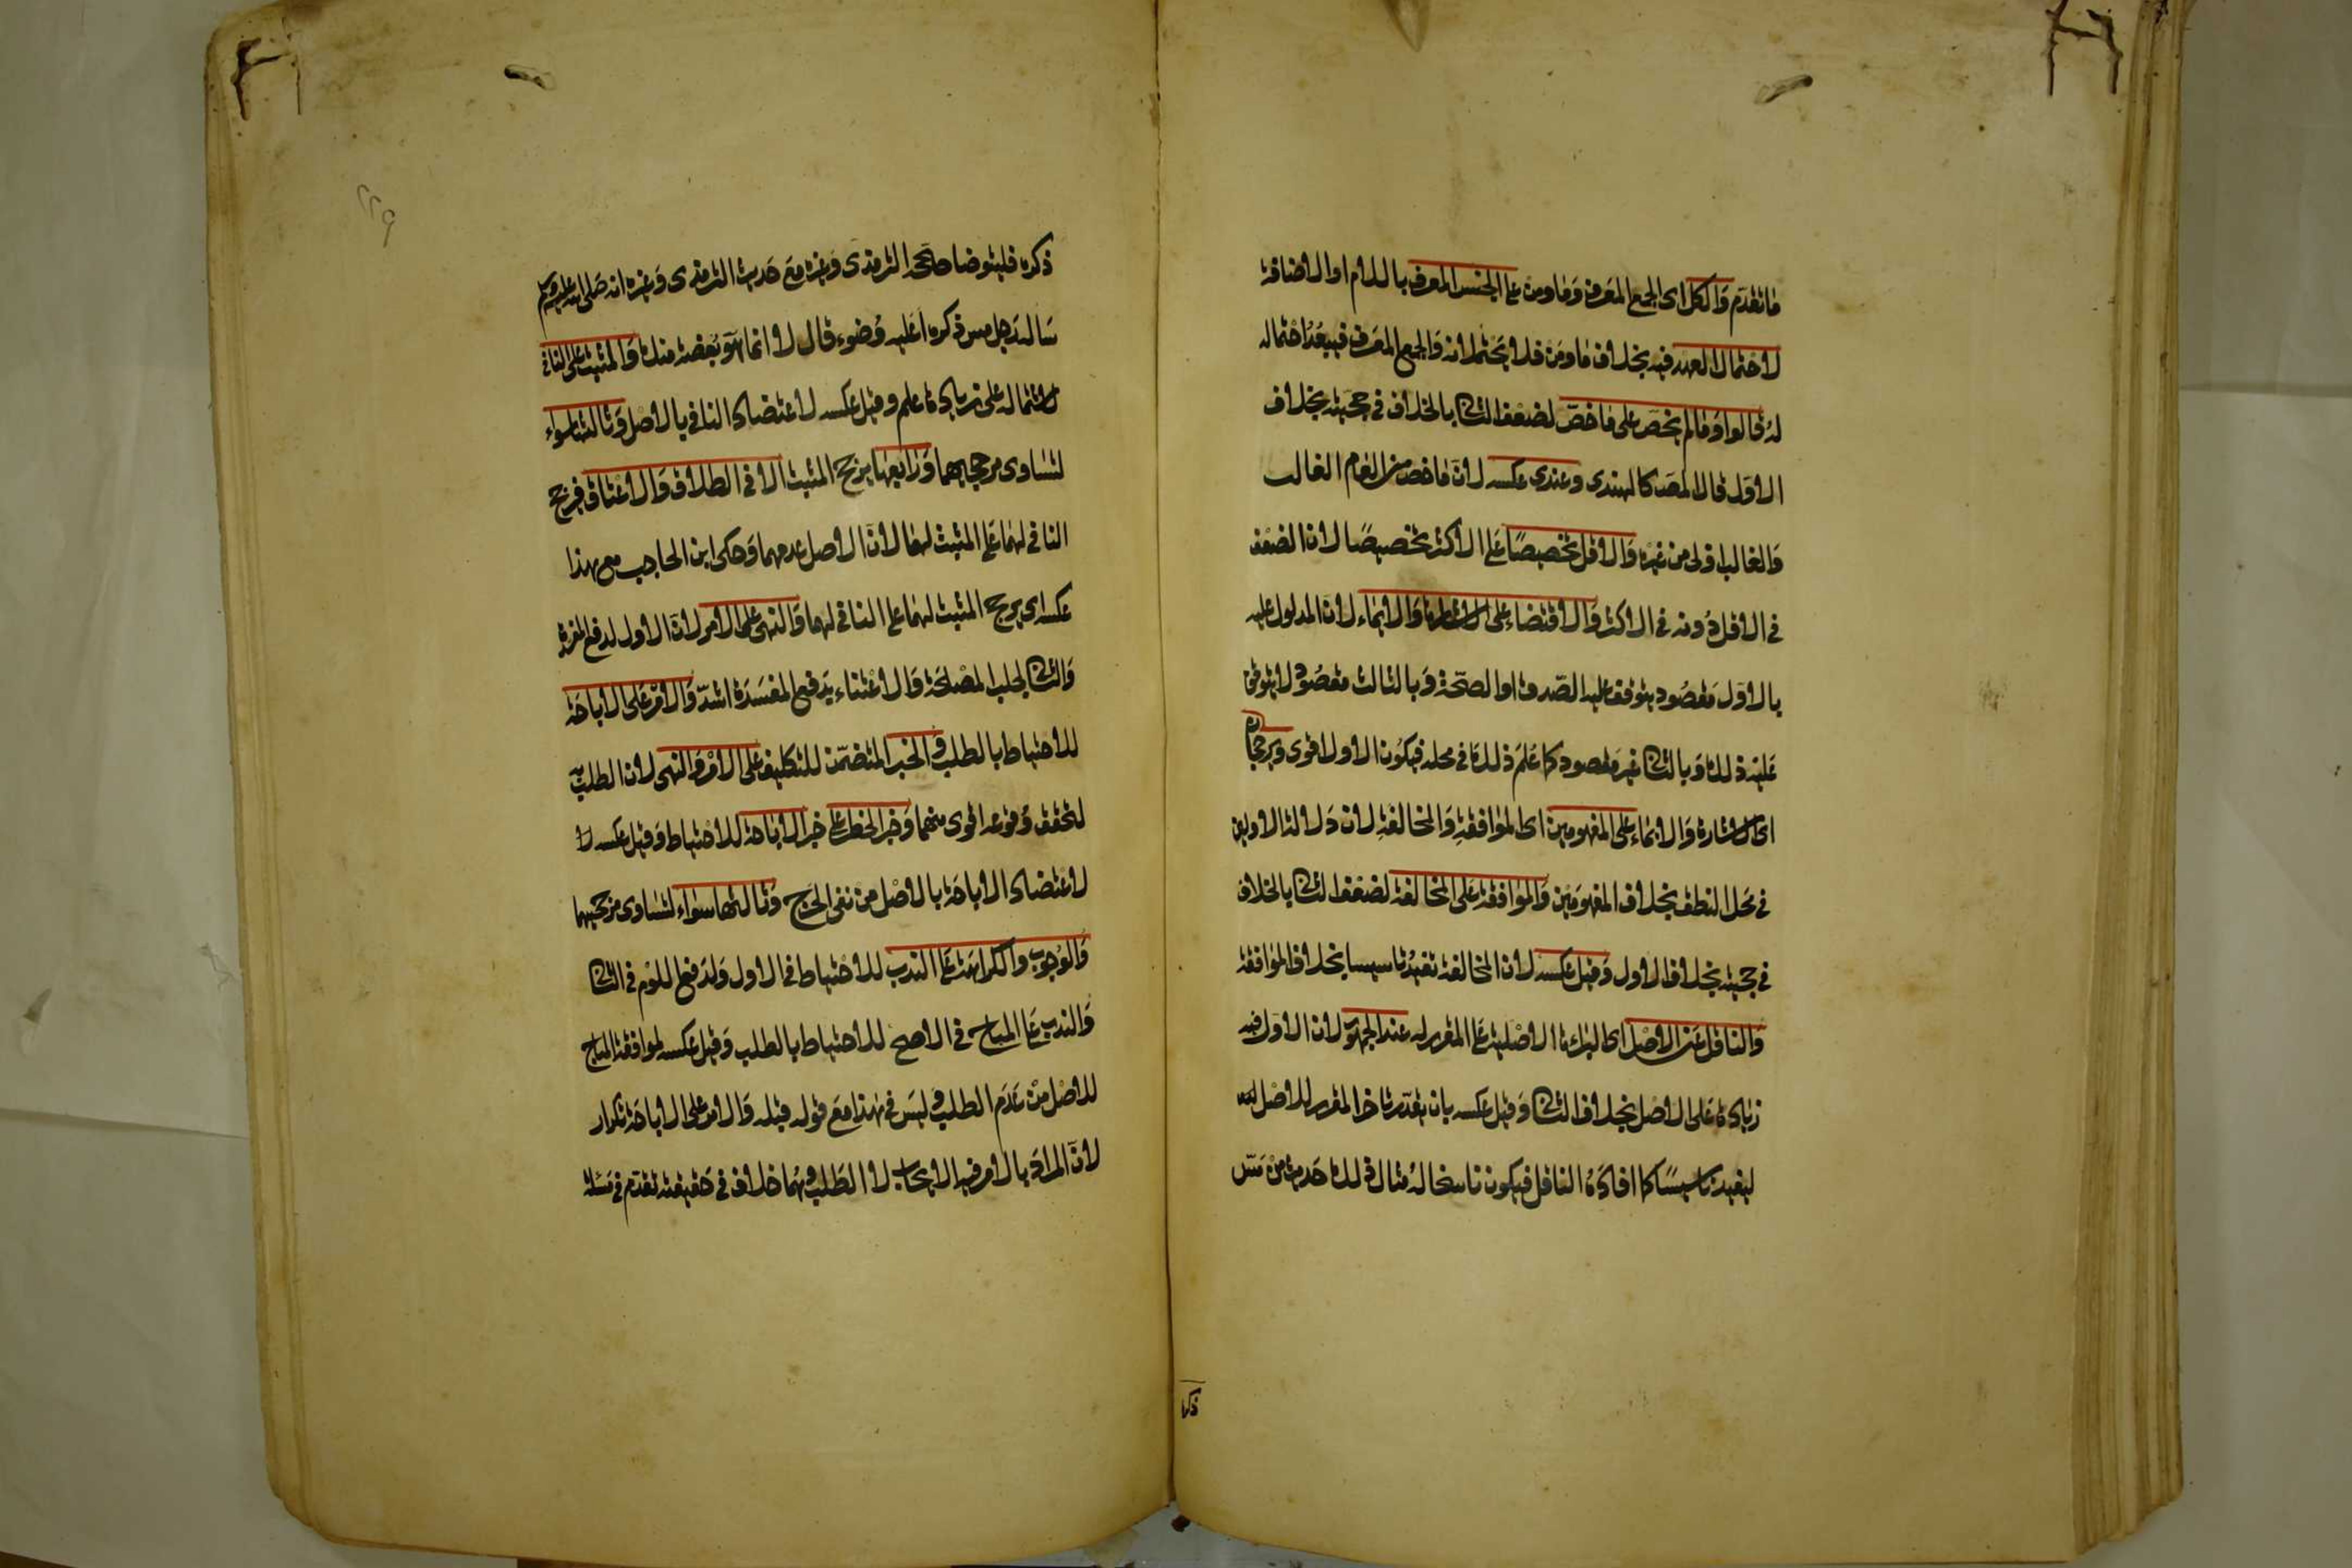 ما تقدم والكل اى الجمع المعرف وما ومن على الجنس المعرف باللام او الاضافة
لاحتمال العهد فيه بخلاف ما ومن فلا يحتملانه والجمع المعرف فيبعد احتماله
له قالوا وما لم يخص على ما خص لضعف الثانى بالخلاف فى حجيته بخلاف
الاول قال المصـ كالهندى وعندى عكسه لان ما خص من العام الغالب
والغالب اولى من غيره والاقل تخصيصا على الاكثر تخصيصا لان الضعف
فى الاقل دونه فى الاكثر والاقتضاء على الاشارة والايماء لان المدلول عليه
بالاول مقصود يتوقف عليه الصدق او الصحة وبالثالث مقصود لا يتوقف
عليه ذلك وبالثانى غير مقصود كما علم ذلك فى محله فيكون الاول اقوى ويرجحان
اى الاشارة والايماء على المفهومين اى الموافقة والمخالفة لان دلالة الاولين
فى محل النطق بخلاف المفهومين والموافقة على المخالفة لضعف الثانى بالخلاف
فى حجيته بخلاف الاول وقيل عكسه لان المخالفة تفيد تاسيسا بخلاف الموافقة
والناقل عن الاصل اى البراءة الاصلية على المقرر له عند الجمهور لان الاول فيه
زيادة على الاصل بخلاف الثانى وقيل عكسه بان يقدر تاخر المقرر للاصل
ليفيد تاسيسا كما افاده الناقل فيكون ناسخا له مثال ذلك حديث من مس
ذكره
ذكره فليتوضا صححه الترمذى وغيره مع حديث الترمذى وغيره انه صلى الله عليه وسلم
ساله رجل مس ذكره اعليه وضوء قال لا انما هو بضعة منك والمثبت على النافى
لاشتماله على زيادة علم وقيل عكسه لاعتضاد النافى بالاصل وثالثها سواء
لتساوى مرجحيهما ورابعها يرجح المثبت الا فى الطلاق والاعتاق فيرجح
النافى لهما على المثبت لهما لان الاصل عدمهما وحكى ابن الحاجب مع هذا
عكسه اى يرجح المثبت لهما على النافى لهما والنهى على الامر لان الاول لدفع المفسدة
والثانى لجلب المصلحة والاعتناء بدفع المفسدة اشد والامر على الاباحة
للاحتياط بالطلب والخبر المتضمن للتكليف على الامر والنهى لان الطلب به
لتحقق وقوعه اقوى منهما وخبر الحظر على خبر الاباحة للاحتياط وقيل عكسه لا
لاعتضاد الاباحة بالاصل من نفى الحرج وثالثها سواء لتساوى مرجحيهما
والوجوب والكراهة على الندب للاحتياط فى الاول ولدفع اللوم فى الثانى
والندب على المباح فى الاصح للاحتياط بالطلب وقيل عكسه لموافقة المباح
للاصل من عدم الطلب وليس فى هذا مع قوله قبله والامر على الاباحة تكرار
لان المراد بالامر فيه الايجاب لا الطلب وهما خلاف فى حقيقته تقدم فى مسئلة